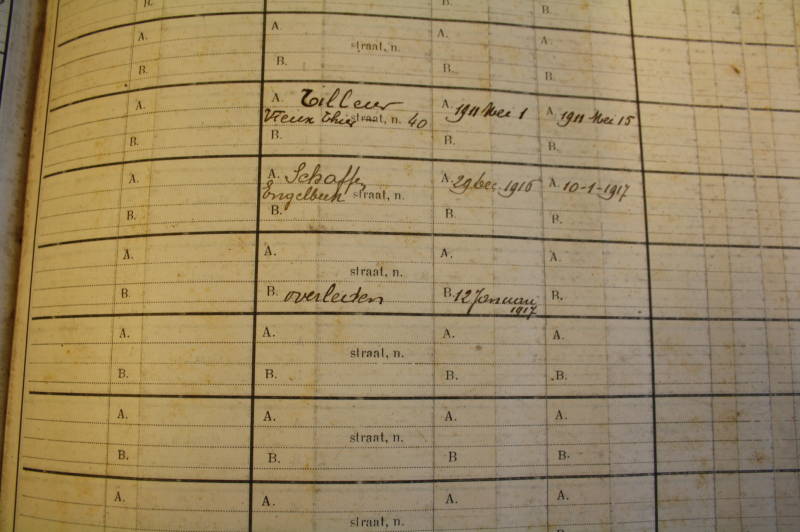 B. B. B.
A. A. A. A.
straat, n.
B. B. B. B.
A. A. Tilleur A. 1911 Mei 1 A. 1911 Mei 15
Vieux Thier straat, n. 40
B. B. B. B.
A. A. Schaffen A. 29 Dec. 1916 A. 10-1-1917
Engelbeek straat, n.
B. B. B. B.
A. A. A. A.
straat, n.
B. B. overleden B. 12 Januari B.
1917
A. A. A. A.
straat, n.
B. B. B. B.
A. A. A. A.
straat, n.
B. B. B B.
A. A. A. A.
straat, n.